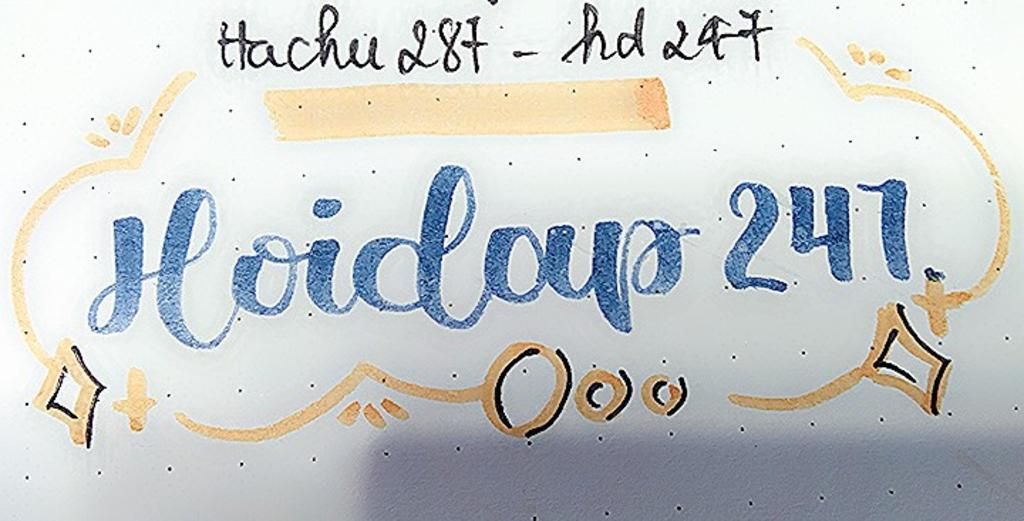 Hachu 287 - hd 247
Hoidap 247